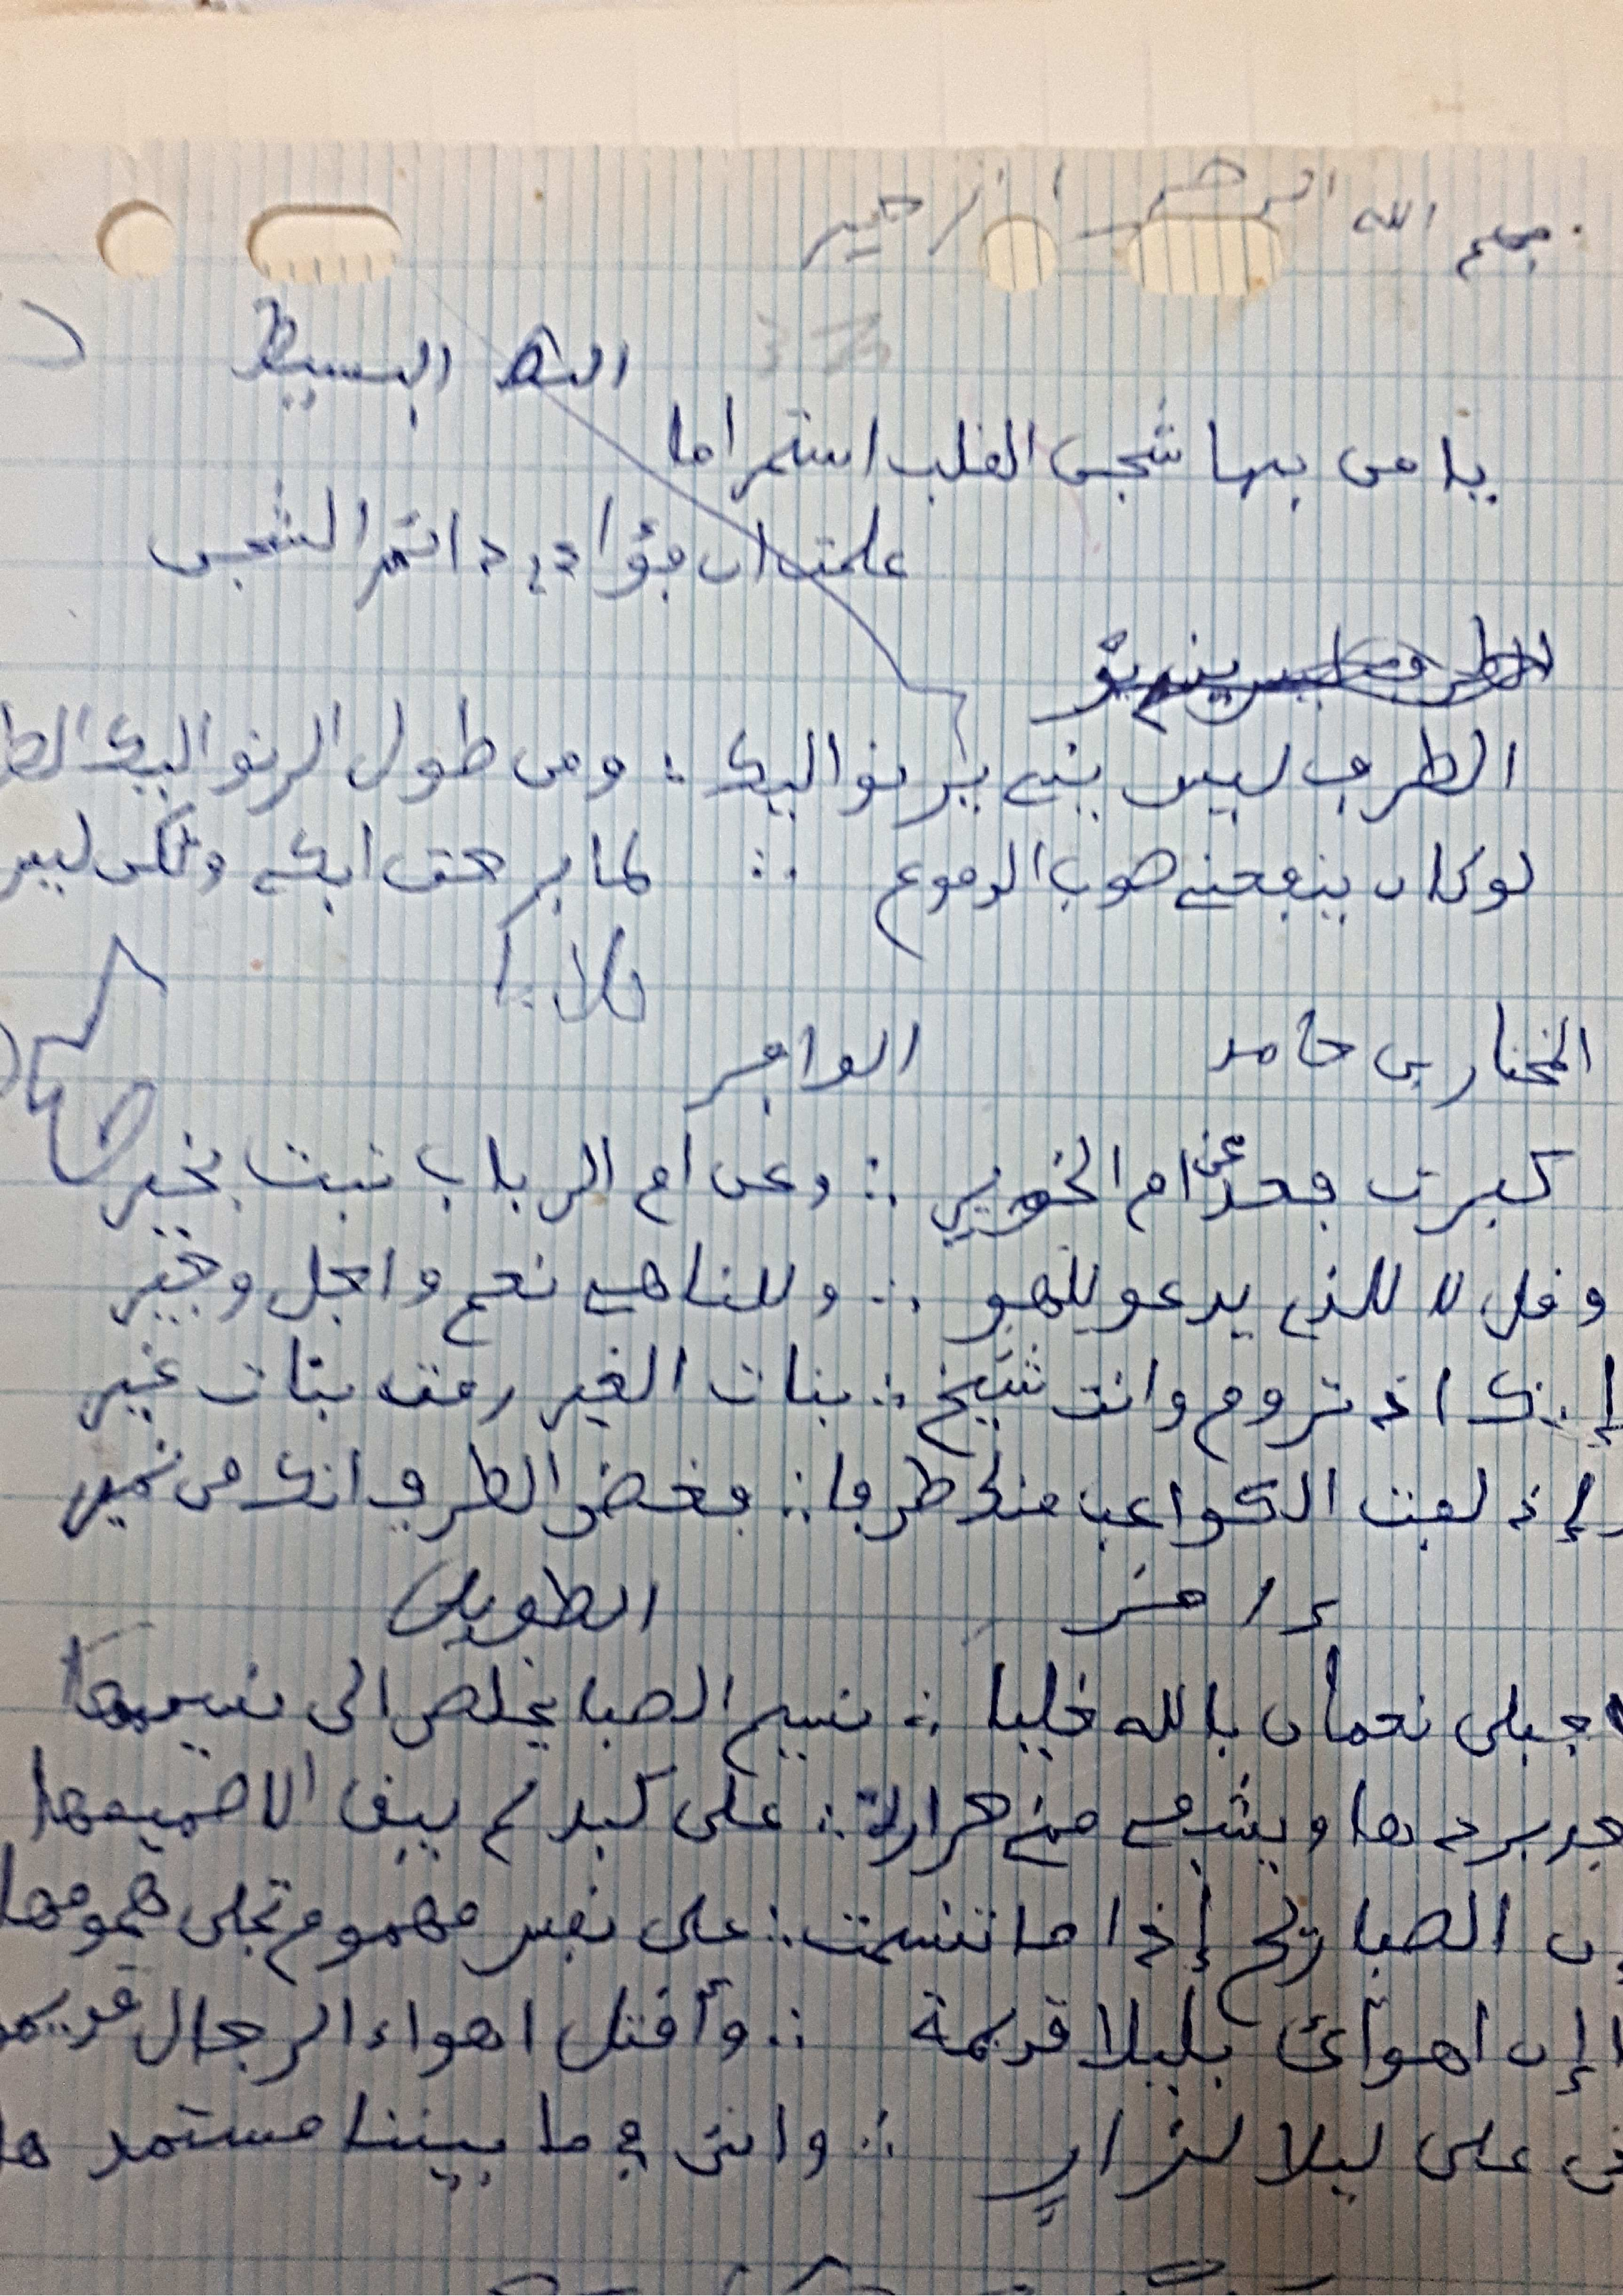 بسم الله الرحمن الرحيم
البسيط
يا من بها شجن القلب استمر اما
علمت ان فؤادي دائم الشجن
الطرف ليس يني يرنو اليك : ومن طول الرنو اليك الطر
لو كان ينفعني صوب الدموع ∴ لما برحت ابكي ولكن ليس
المختار بن حامد الوافر
كبرت فعد عن ام الخوير ∴ وعن ام الرباب تبت بخير
وقل لا للذي يدعو للهو ∴ وللناهي نعم واجل وجير
إنك اذ تروم وانت شيخ ∴ بنات الغير رمت بنات غير
إذ لفت الكواعب منك طرفا ∴ فغض الطرف انك من نمير
الطويل
جبلى نعمان بالله خليا ∴ نسيم الصبا يخلص الى نسيمها
جد بردها ويشفي مني حرارة ∴ على كبد لم يبق الا صميمها
ن الصبا ريح إذا ما تنسمت ∴ على نفس مهموم تجلى همومها
إن اهوائي بليلا قديمة ∴ وأقتل اهواء الرجال قديم
ني على ليلا لزار ∴ وانني في ما بيننا مستمد